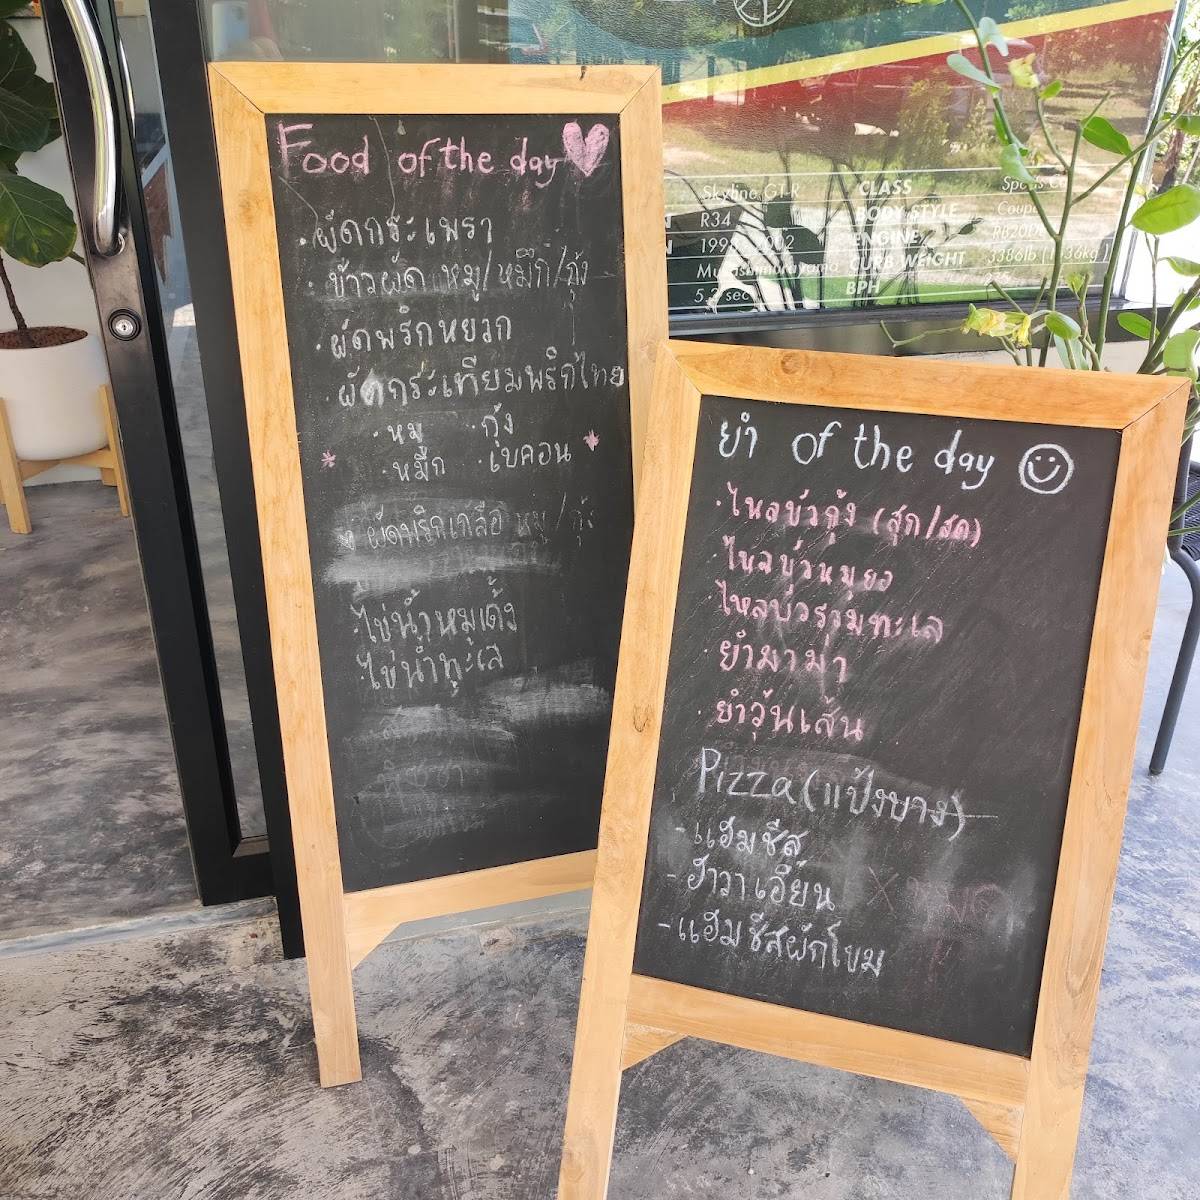 Food of the day
· ผัดกระเพรา
· ข้าวผัด หมู/หมึก/กุ้ง
· ผัดพริกหยวก
· ผัดกระเทียมพริกไทย
· หมู · กุ้ง
* · หมึก · เบคอน *
ผัดพริกเกลือ หมู/กุ้ง
· ไข่น้ำหมูเด้ง
· ไข่น้ำทะเล
ยำ of the day
· ไหลบัวกุ้ง (สุก/สด)
· ไหลบัวหมูยอ
· ไหลบัวรวมทะเล
· ยำมาม่า
· ยำวุ้นเส้น
Pizza (แป้งบาง)
- แฮมชีส
- ฮาวาเอี้ยน X หมด
- แฮมชีสผักโขม
Skyline GT-R CLASS
R34 BODY STYLE Coupe
2002 ENGINE
Musashimurayama CURB WEIGHT 3386lb
BPH